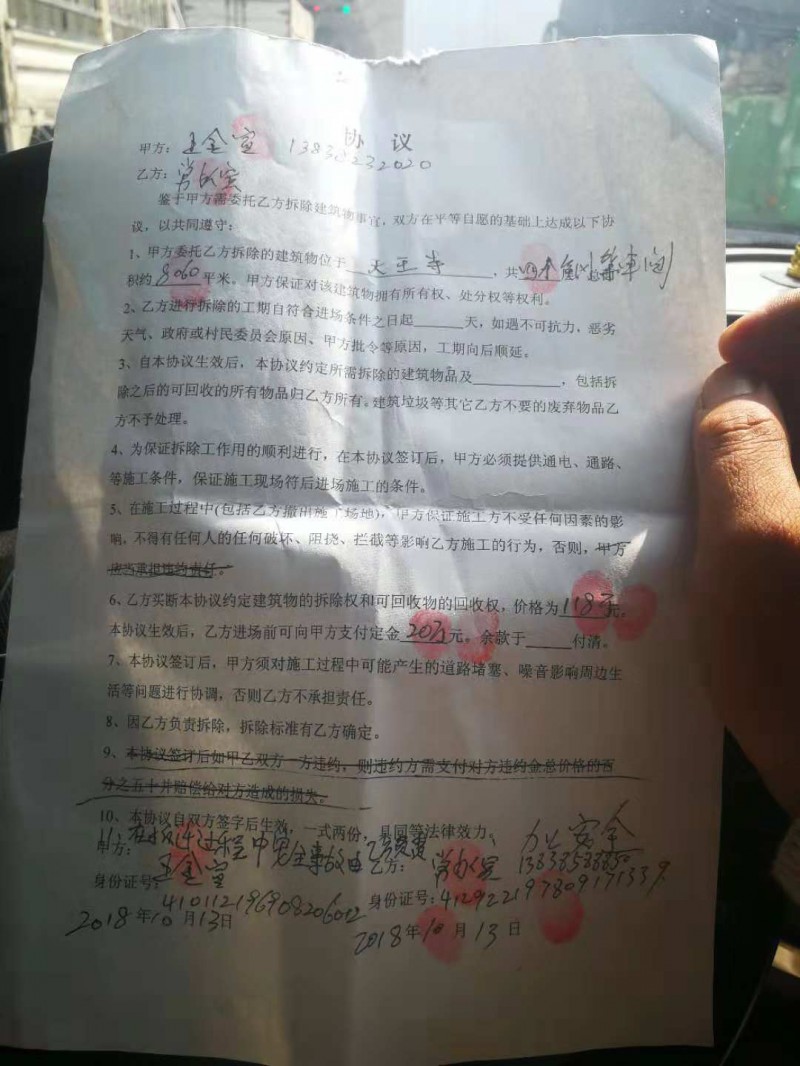 协 议
甲方：王金宝 13838232020
乙方：
鉴于甲方需委托乙方拆除建筑物事宜，双方在平等自愿的基础上达成以下协
议，以共同遵守：
1、甲方委托乙方拆除的建筑物位于 大王寺 ，共
积约 8060 平米。甲方保证对该建筑物拥有所有权、处分权等权利。
2、乙方进行拆除的工期自符合进场条件之日起______天，如遇不可抗力、恶劣
天气、政府或村民委员会原因、甲方批令等原因，工期向后顺延。
3、自本协议生效后，本协议约定所需拆除的建筑物品及__________，包括拆
除之后的可回收的所有物品归乙方所有。建筑垃圾等其它乙方不要的废弃物品乙
方不予处理。
4、为保证拆除工作用的顺利进行，在本协议签订后，甲方必须提供通电、通路、
等施工条件，保证施工现场符后进场施工的条件。
5、在施工过程中(包括乙方撤出施工场地)，甲方保证施工方不受任何因素的影
响，不得有任何人的任何破坏、阻挠、拦截等影响乙方施工的行为，否则，甲方
应当承担违约责任。
6、乙方买断本协议约定建筑物的拆除权和可回收物的回收权，价格为 118万元。
本协议生效后，乙方进场前可向甲方支付定金 20万元。余款于_____付清。
7、本协议签订后，甲方须对施工过程中可能产生的道路堵塞、噪音影响周边生
活等问题进行协调，否则乙方不承担责任。
8、因乙方负责拆除，拆除标准有乙方确定。
9、本协议签订后如甲乙双方一方违约，则违约方需支付对方违约金总价格的百
分之五十并赔偿给对方造成的损失。
10、本协议自双方签字后生效，一式两份，具同等法律效力。
11、在拆迁过程中安全事故由乙方负责 办公安全
甲方：王金宝 乙方：
身份证号： 身份证号：412922197809171339
2018年10月13日 2018年10月13日